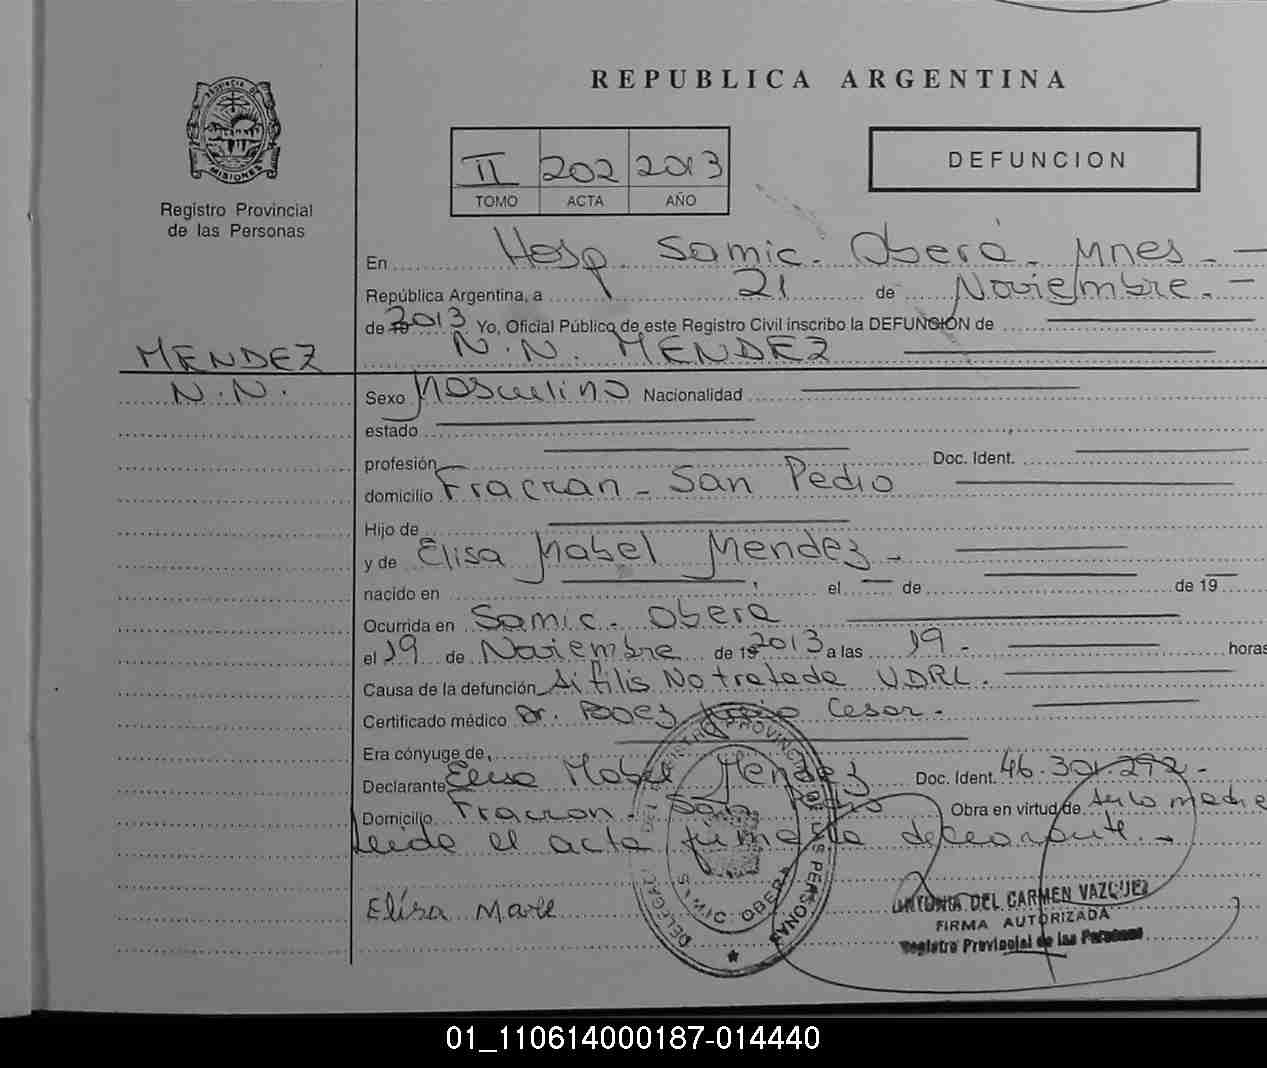 REPUBLICA ARGENTINA
PROVINCIA DE MISIONES
Registro Provincial
de las Personas
II 202 2013
TOMO ACTA AÑO
DEFUNCION
En Hosp Samic. Oberá. Mnes. —
República Argentina, a 21 de Noviembre. —
de 2013 Yo, Oficial Público de este Registro Civil inscribo la DEFUNCIÓN de
N.N. MENDEZ
MENDEZ
N.N.
Sexo Masculino Nacionalidad
estado
profesión Doc. Ident.
domicilio Fracran - San Pedro
Hijo de
y de Elisa Mabel Mendez -
nacido en el — de de 19
Ocurrida en Samic. Obera
el 19 de Noviembre de 2013 a las 19 - horas
Causa de la defunción Sifilis No tratada VDRL.
Certificado médico Dr. Cesar.
Era cónyuge de
Declarante Elisa Mabel Mendez Doc. Ident. 46.301.292.-
Domicilio Fracran - San Pedro Obra en virtud de ser la madre
leida el acta firma la declarante. -
Elisa
DELEGAC REGISTRO PROVINCIAL DE LAS PERSONAS
OBERA
ANTONIA DEL CARMEN VAZQUEZ
FIRMA AUTORIZADA
Registro Provincial de las Personas
01_110614000187-014440